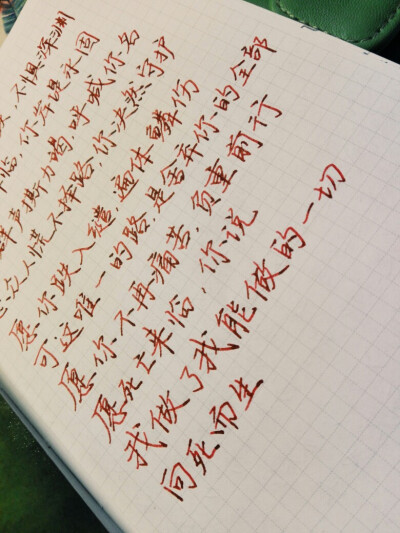 不惧深渊
临，你岸是永困
声撕力竭呼喊你名
众人慌不择路，你决然守护
愿你跌入谴，遍体鳞伤
可这唯一的路，是舍弃你的全部
愿你不再痛苦，负重前行
愿死亡来临，你说
我做了我能做的一切
向死而生